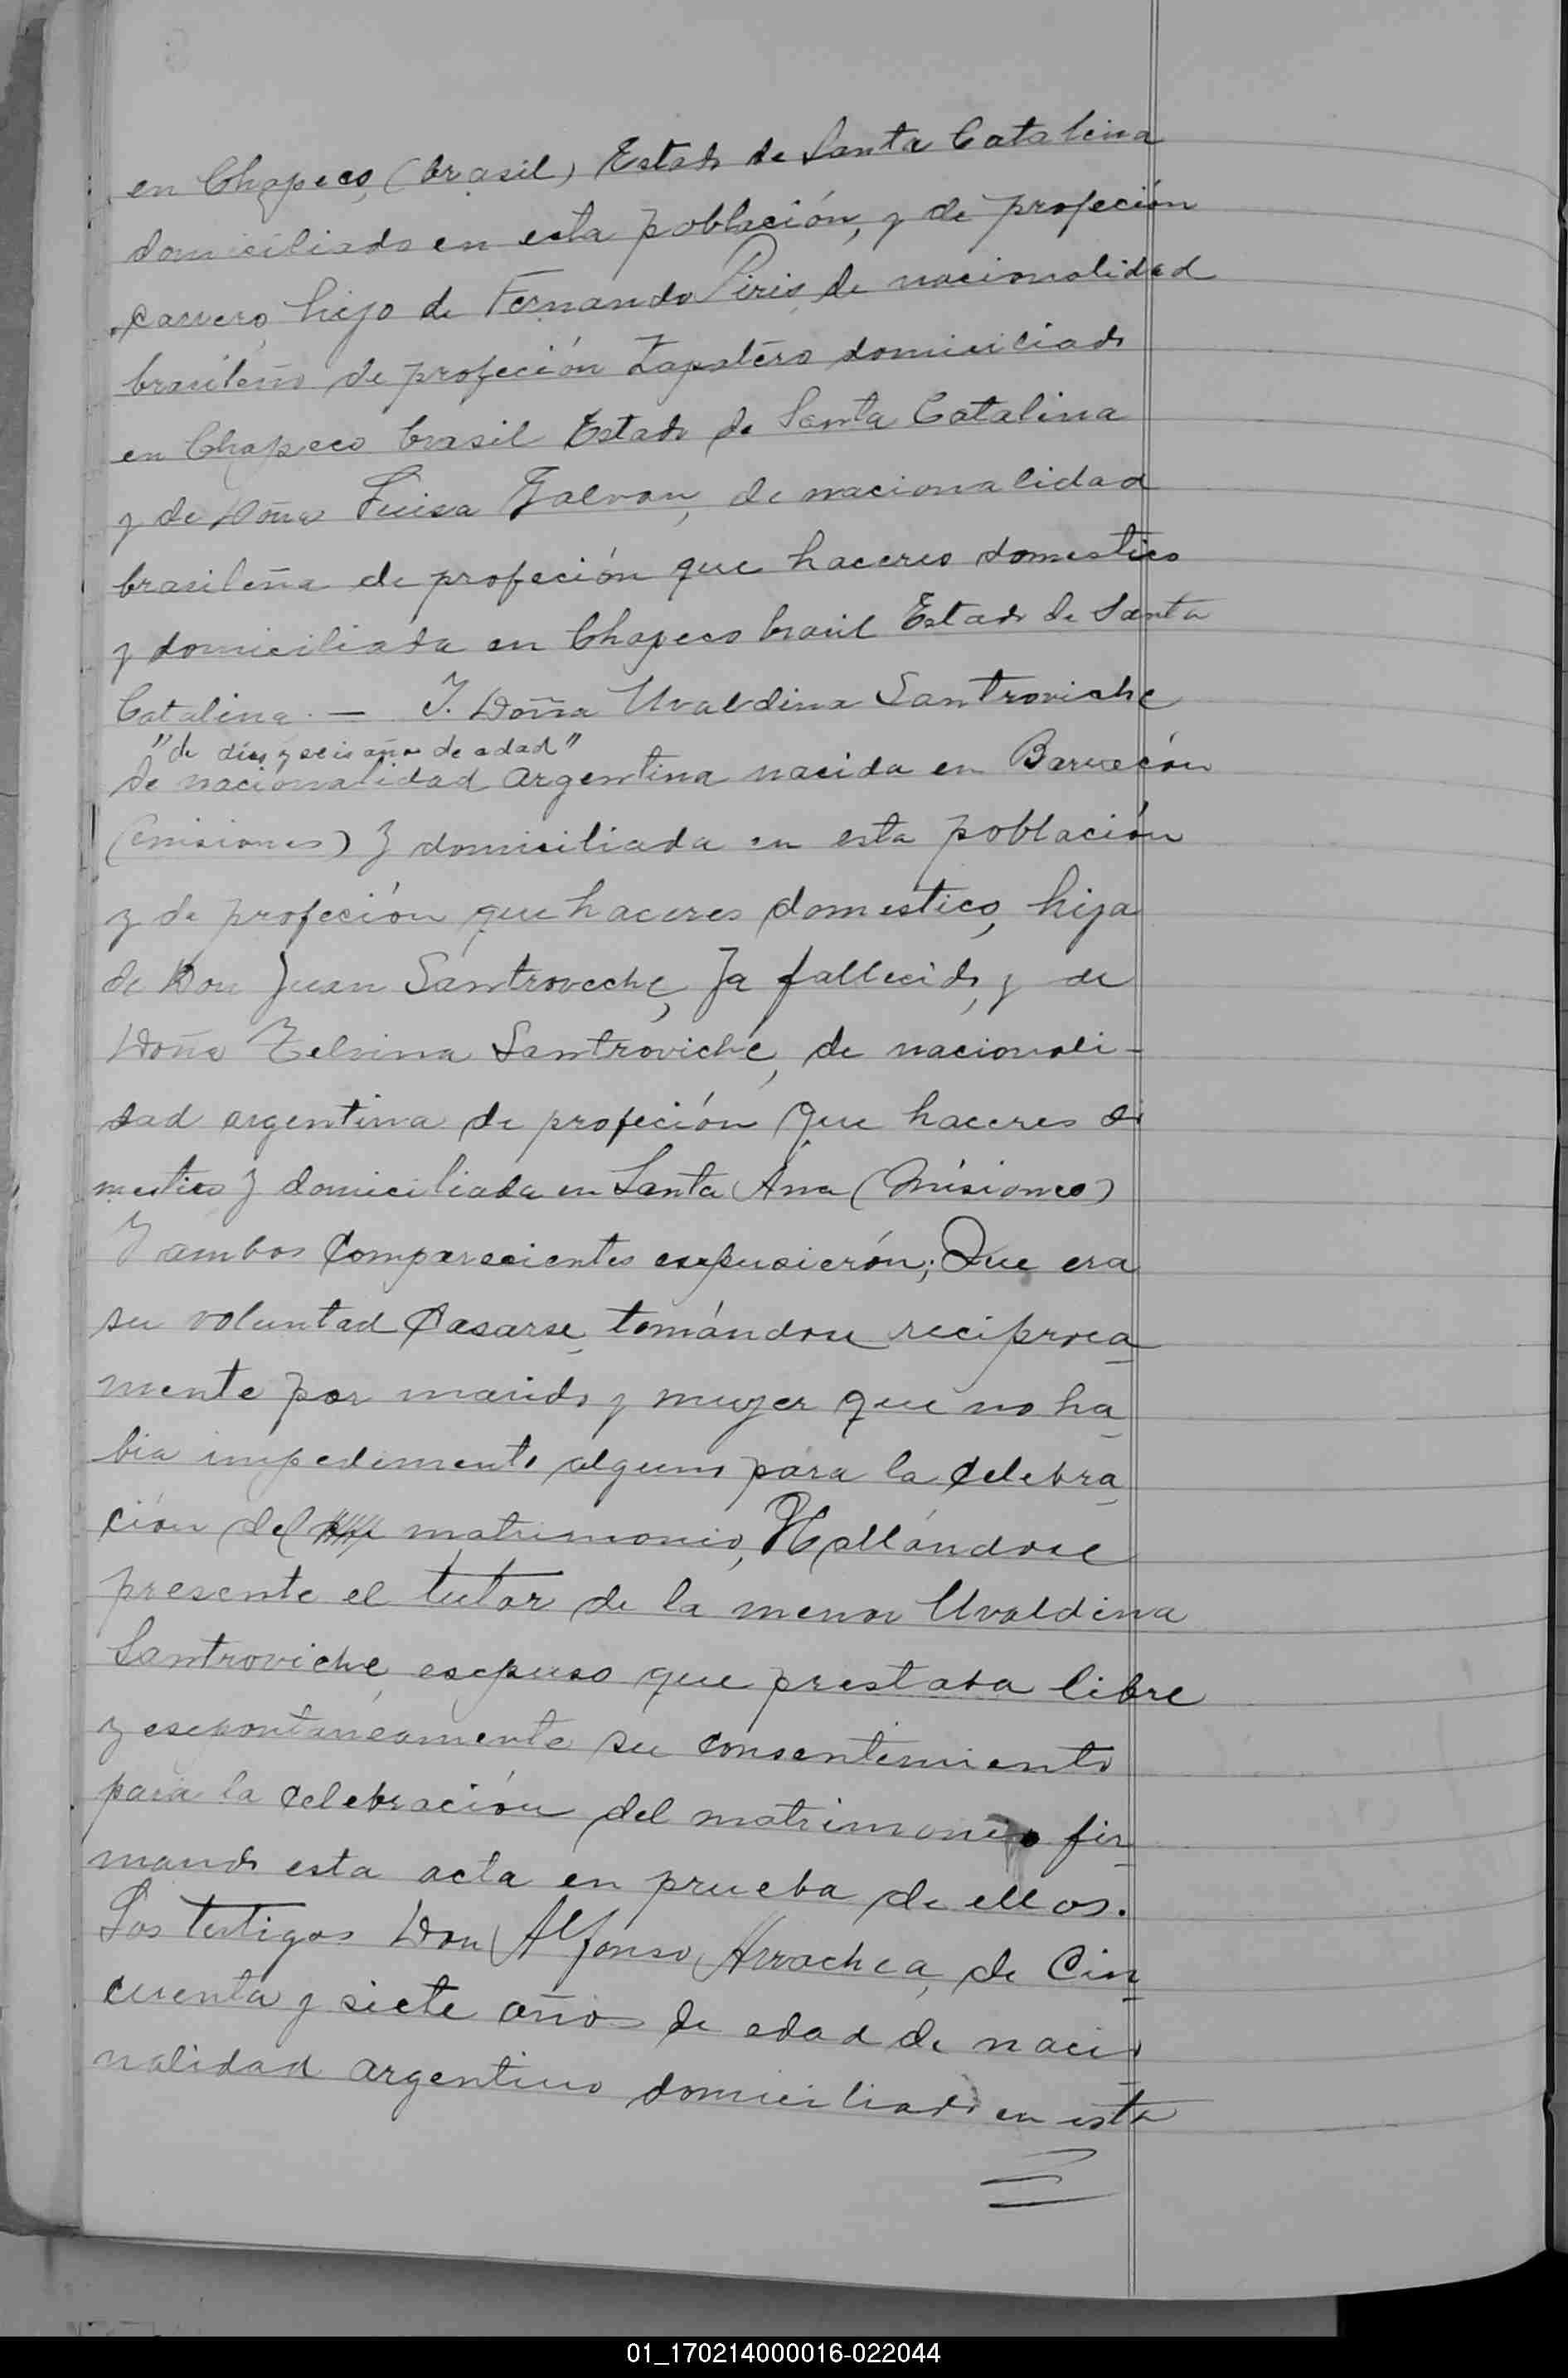 en Chapeco, (brasil) Estado de Santa Catalina
domiciliado en esta población, y de profeción
carrero, hijo de Fernando Piris, de nacionalidad
brasileño de profeción Zapatero domiciliado
en Chapeco brasil Estado de Santa Catalina
y de Doña Luisa Galvan, de nacionalidad
brasileña de profeción que haceres domestico
y domiciliada en Chapeco brasil Estado de Santa
Catalina. — Y. Doña Uvaldina Santroviche
"de dies y seis años de edad"
de nacionalidad argentina nacida en Barracón
(misiones) y domiciliada en esta población
y de profeción que haceres domestico, hija
de Don Juan Santroveche, ya fallecido, y de
Doña Zelvina Santroviche, de nacionali-
dad argentina de profeción que haceres do
mestico y domiciliada en Santa Ana (Misiones)
Y ambos Comparecientes esepusierón; Que era
su voluntad Casarse, tomándose reciproca
mente por marido y mujer que no ha
bia impedimento alguno para la Celebra
ción del matrimonio, Hallándose
presente el tutor de la menor Uvaldina
Santroviche, esepuso que prestaba libre
y esepontaneamente su consentimiento
para la Celebración del matrimonio fir
mando esta acta en prueba de ellos.
Los testigos Don Alfonso Arrachea, de Cin
cuenta y siete años de edad de nacio
nalidad argentino domiciliado en esta
01_170214000016-022044